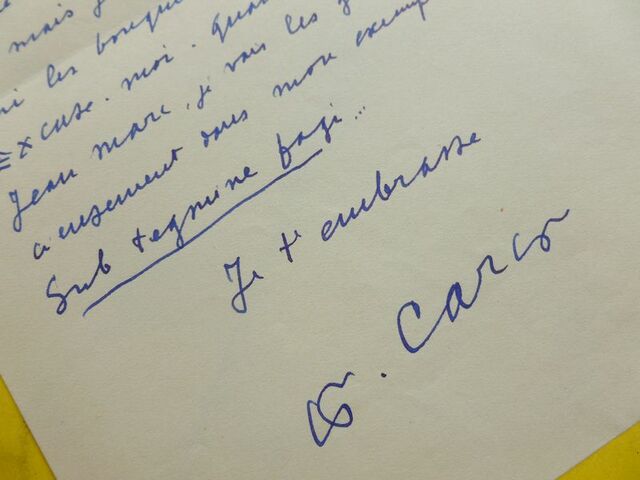 mais j
les bouqu
Excuse-moi. Quan
Jean Marc, je vais les
dans mon exemp
Sub tegmine fagi...
Je t'embrasse
F. Carco